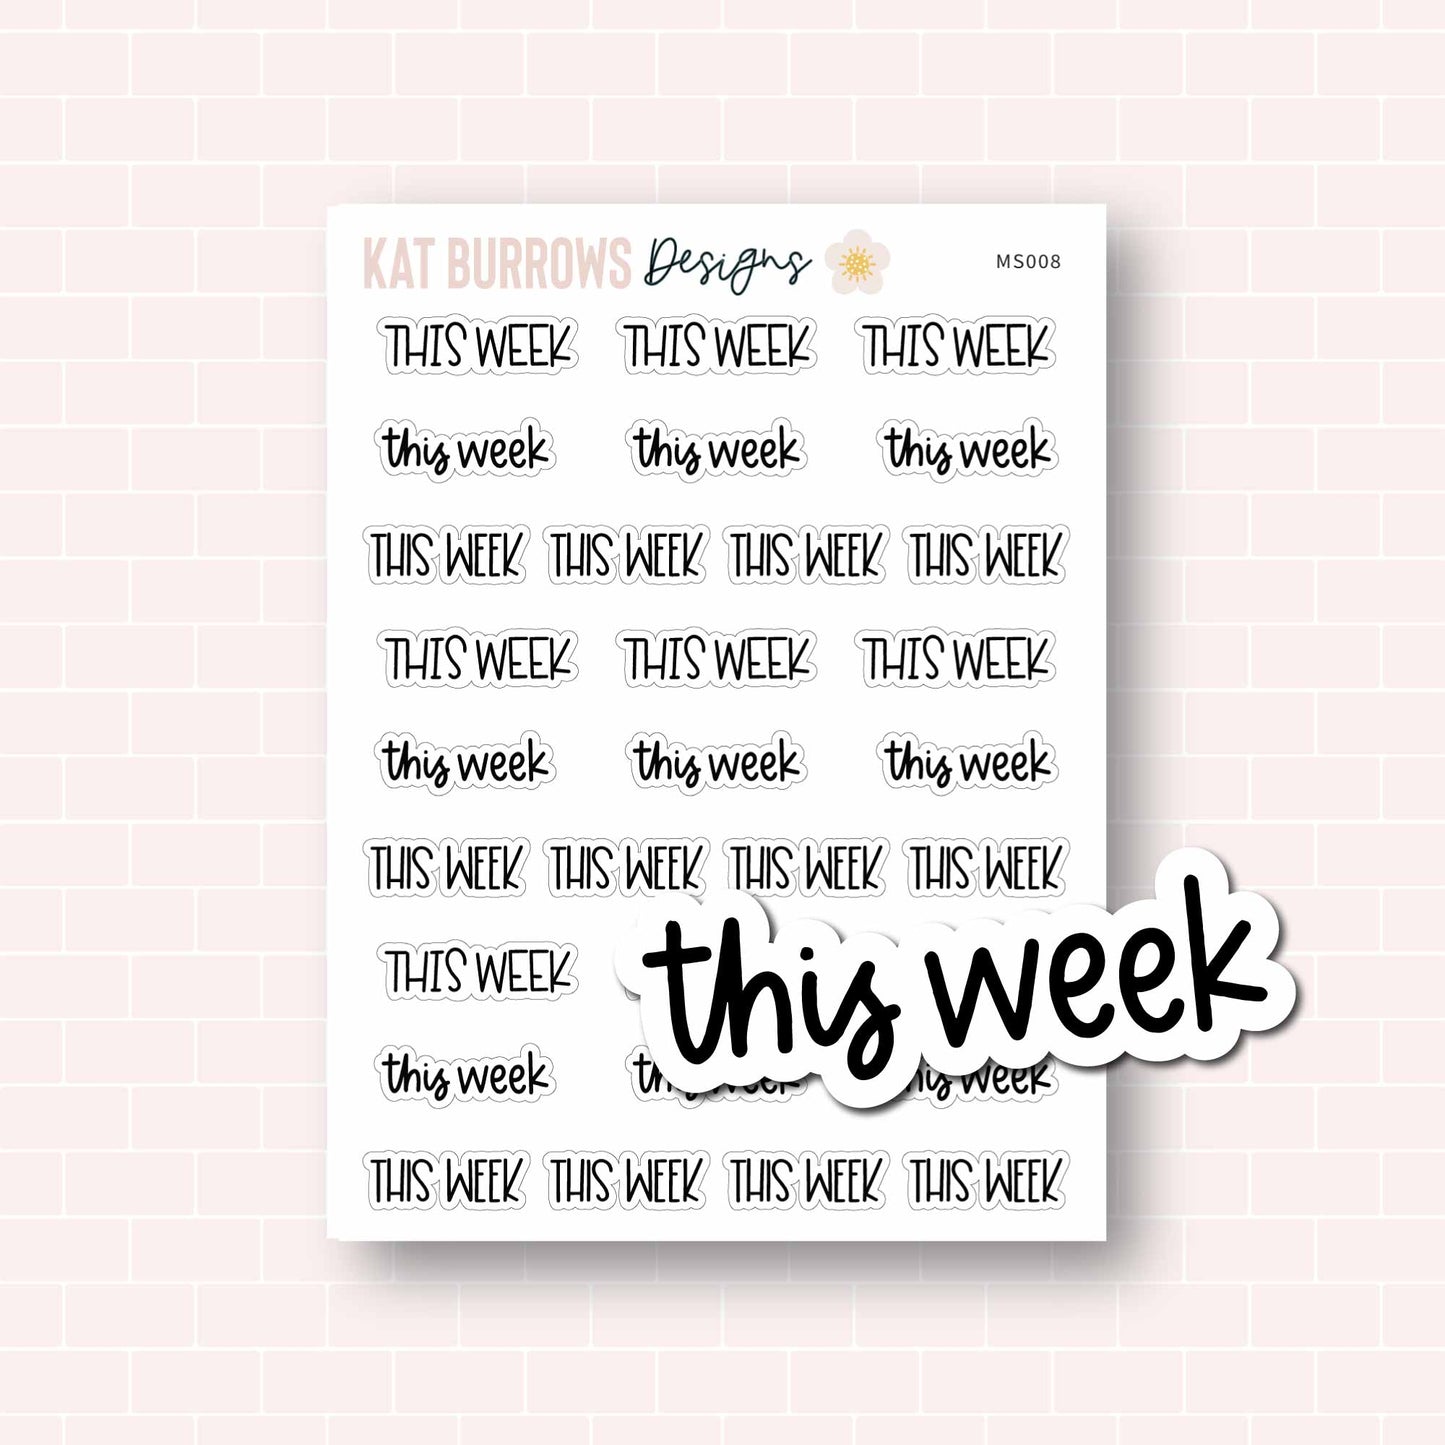 KAT BURROWS Designs MS008
THIS WEEK THIS WEEK THIS WEEK
this week this week this week
THIS WEEK THIS WEEK THIS WEEK THIS WEEK
THIS WEEK THIS WEEK THIS WEEK
this week this week this week
THIS WEEK THIS WEEK THIS WEEK THIS WEEK
THIS WEEK
this week
this week week
THIS WEEK THIS WEEK THIS WEEK THIS WEEK